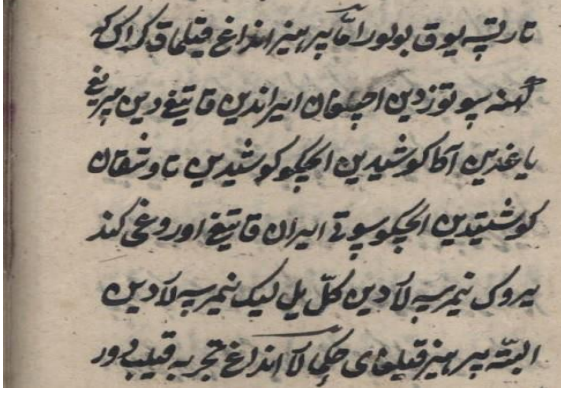 تارتسه یوق بولور امّا پرهیز انداغ قیلماق کراک که
کهنه سو توزدین اچیغان ایراندین قاتیغ دین سریغ
یاغدین آکا کوشیدین ایچکو کوشیدین تاوشقان
کوشتیدین ایچکو سوتی ایران قاتیغ اوروغی کند
یروک نیمرسه لادین کلّ یل لیک نیمرسه لادین
البتّه پرهیز قیلغای حکما لا انداغ تجربه قیلیب دور